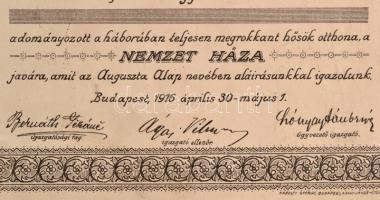 adományozott a háborúban teljesen megrokkant hősök otthona, a
NEMZET HÁZA
javára, amit az Auguszta Alap nevében aláirásunkkal igazolunk.
Budapest, 1916 április 30-május 1.
igazgatósági tag.
igazgató ellenőr
ügyvezető igazgató.